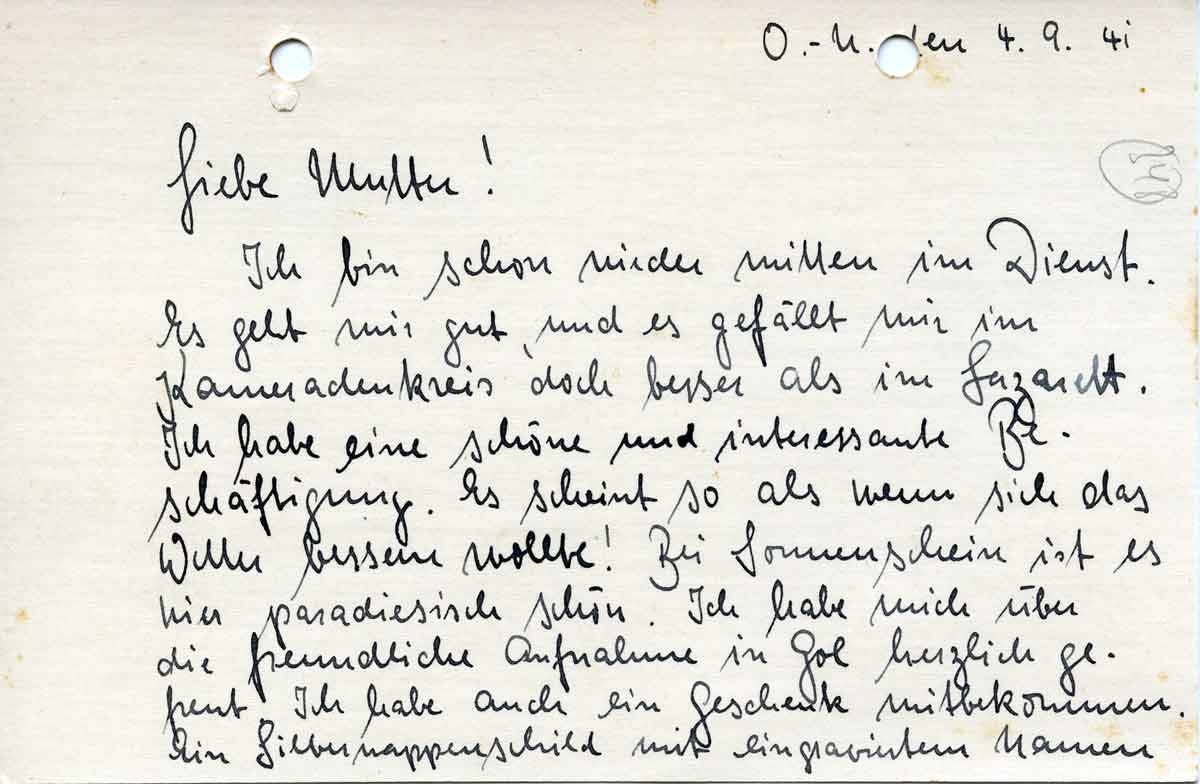 O.-U. den 4. 9. 41
Liebe Mutter!
Ich bin schon wieder mitten im Dienst.
Es geht mir gut und es gefällt mir im
Kameradenkreis doch besser als im Lazarett.
Ich habe eine schöne und interessante Be-
schäftigung. Es scheint so als wenn sich das
Wetter bessern wollte! Bei Sonnenschein ist es
hier paradiesisch schön. Ich habe mich über
die freundliche Aufnahme in Gol herzlich ge-
freut. Ich habe auch ein Geschenk mitbekommen.
Ein Silberwappenschild mit eingraviertem Namen